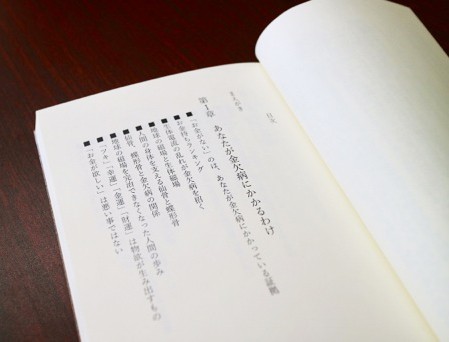 まえがき
目次
第1章 あなたが金欠病にかかるわけ
■「お金がない」のは、あなたが金欠病にかかっている証拠
■お金持ちランキング
■生体電流の乱れが金欠病を招く
■地球の磁場と生体磁場
■人間の身体を支える仙骨と蝶形骨
■仙骨、蝶形骨と金欠病の関係
■地球の磁場を定治できなくなった人間の歩み
■「ツキ」「幸運」「金運」「財運」は物欲が生み出すもの
■「お金が欲しい」は悪い事ではない